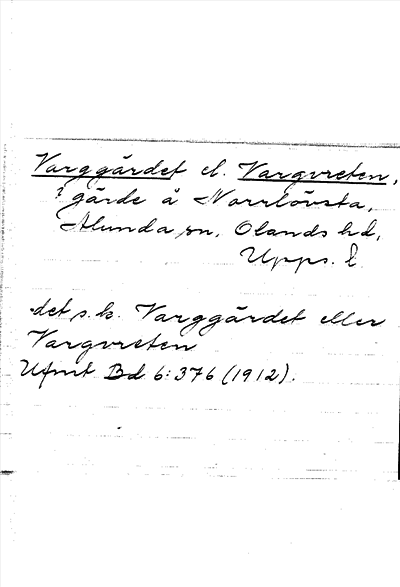 Varggärdet el. Vargvreten,
? gärde å Norrlövsta,
Alunda sn, Olands hd,
Upps. l.
det s.k. Varggärdet eller
Vargvreten
Ufmt Bd 6:376 (1912).